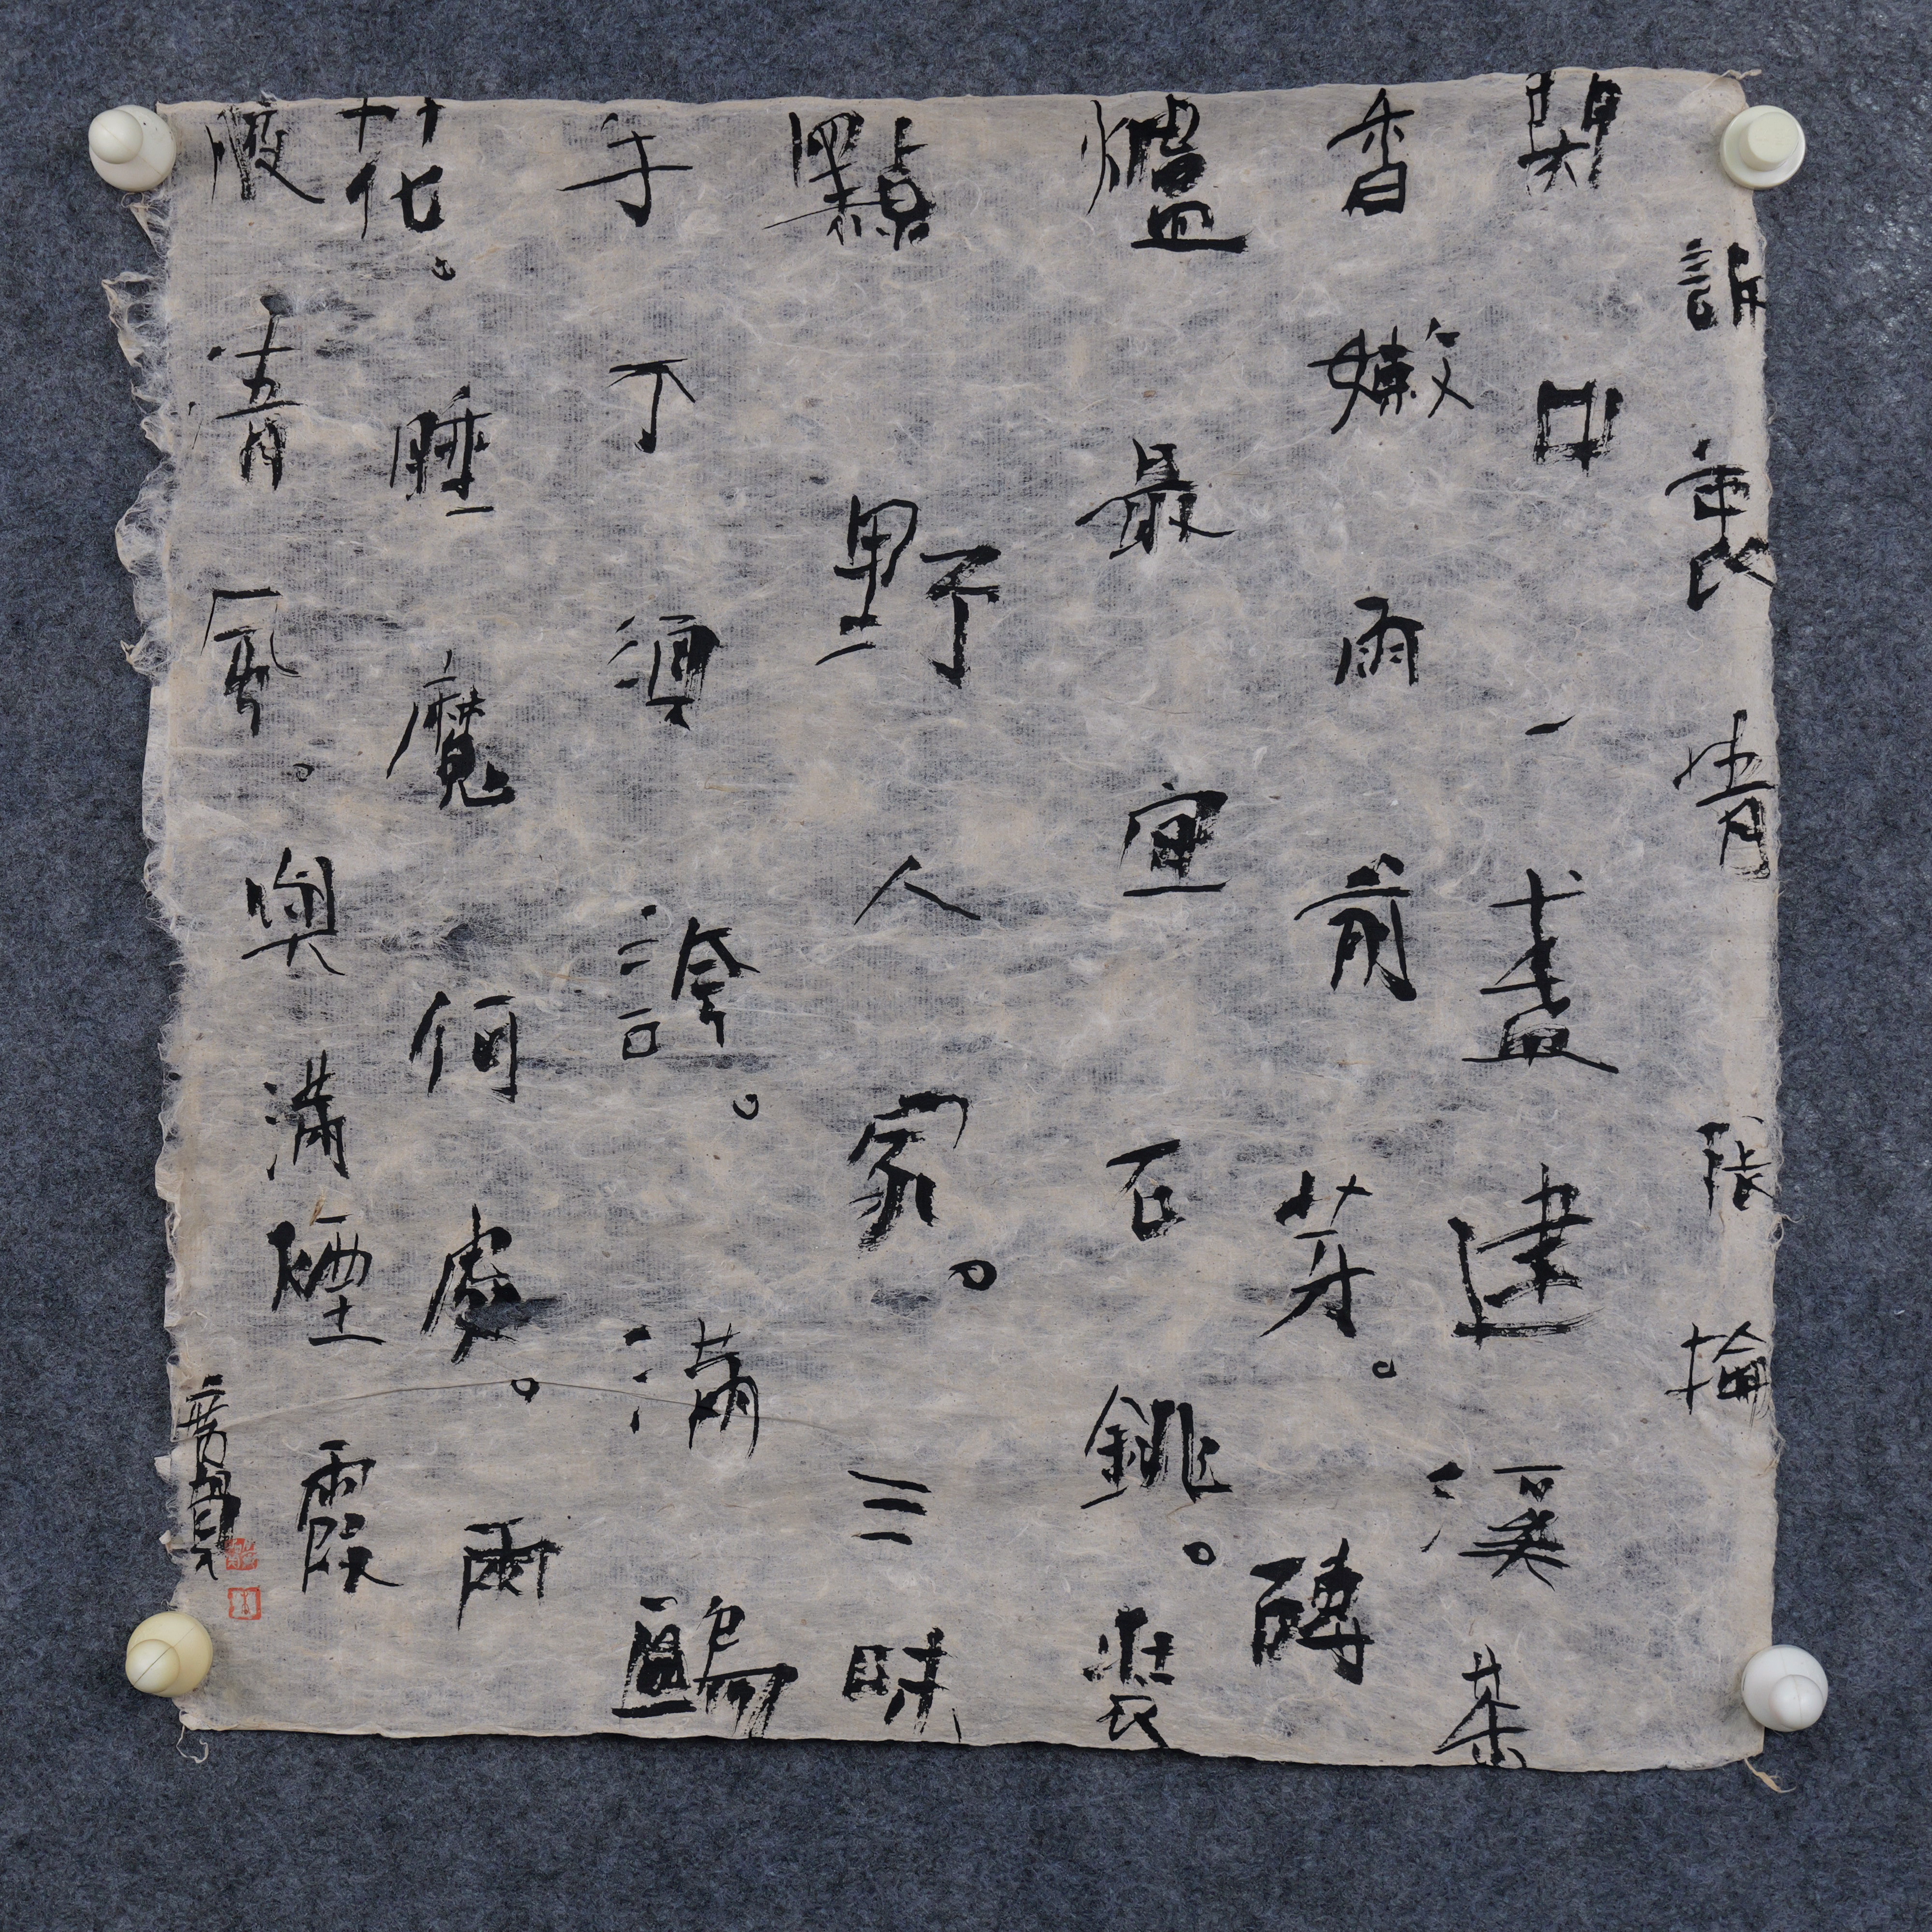 訴衷情 張掄
閑中一盞建溪茶
香嫩雨前芽。磚
爐最宜石銚。裝
點野人家。三昧
手不須誇。滿甌
花。睡魔何處。兩
腋清風。興滿煙霞